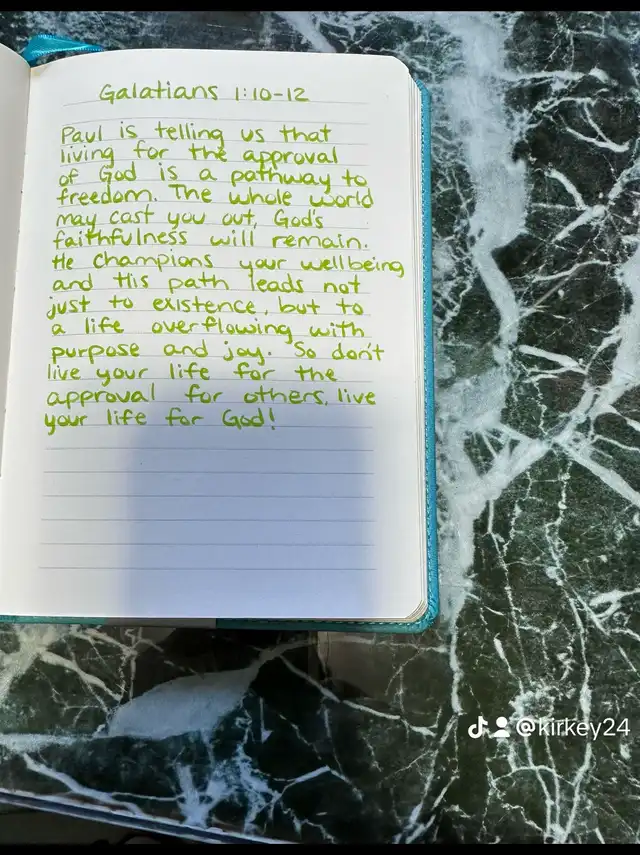 Galatians 1:10-12
Paul is telling us that
living for the approval
of God is a pathway to
freedom. The whole world
may cast you out, God's
faithfulness will remain.
He champions your wellbeing
and His path leads not
just to existence, but to
a life overflowing with
purpose and joy. So don't
live your life for the
approval for others, live
your life for God!
@kirkey24